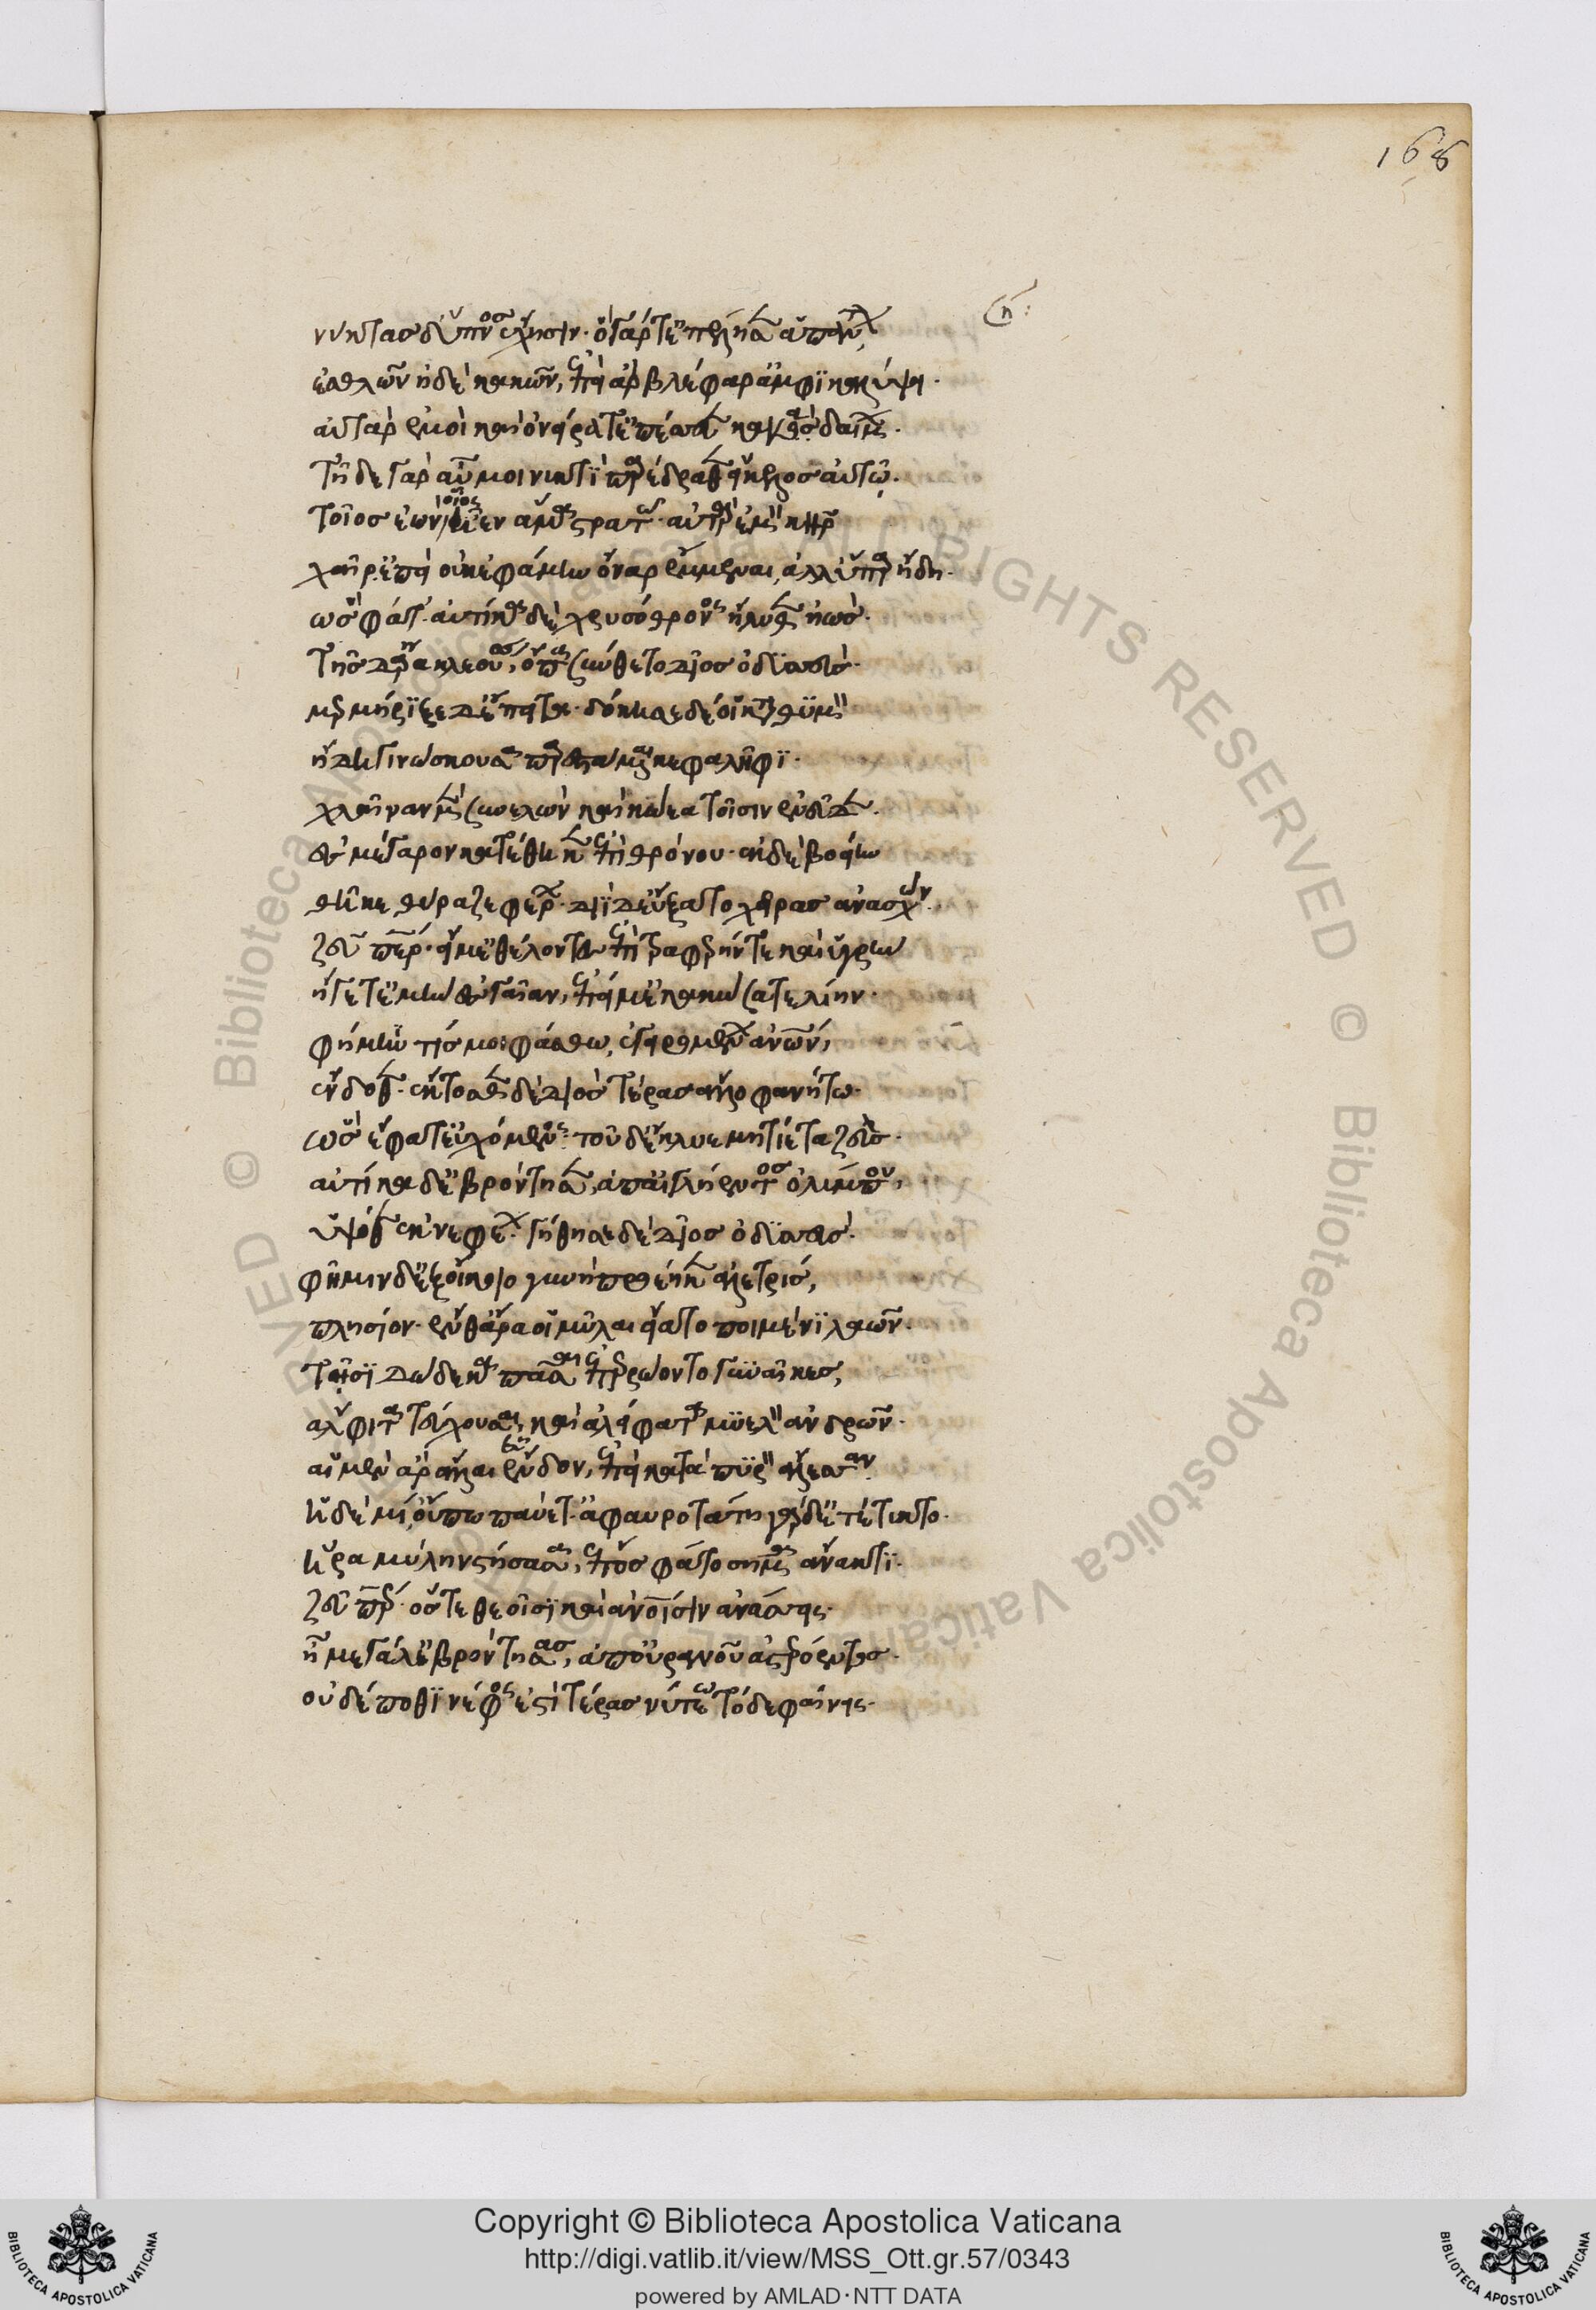 νύκτας δ' ὕπνος ἔχησιν· ὁ γάρ τ' ἐπέλησεν ἁπάντων,
ἐσθλῶν ἠδὲ κακῶν, ἐπεὶ ἂρ βλέφαρ' ἀμφικαλύψη.
αὐτὰρ ἐμοὶ καὶ ὀνείρατ' ἐπέσσευεν κακὰ δαίμων.
τῆδε γὰρ αὖ μοι νυκτὶ παρέδραθεν εἴκελος αὐτῷ.
τοῖος ἐὼν οἷος ἦεν ἅμα στρατῷ· αὐτὰρ ἐμὸν κῆρ
χαῖρ' ἐπεὶ οὐκ ἐφάμην ὄναρ ἔμμεναι, ἀλλ' ὕπαρ ἤδη.
ὣς ἔφατ'· αὐτίκα δὲ χρυσόθρονος ἤλυθεν ἠώς.
τῆς δ' ἄρα κλαιούσης ὄπα σύνθετο δῖος ὀδυσσεύς.
μερμήριξε δ' ἔπειτα· δόκησε δέ οἱ κατὰ θυμὸν
ἤδη γινώσκουσα παρεστάμεναι κεφαλῆφι.
χλαῖναν μὲν συνελὼν καὶ κώεα τοῖσιν ἐνεῦδεν.
ἐς μέγαρον κατέθηκεν ἐπὶ θρόνου· ἐκ δὲ βοείην
θῆκε θύραζε φέρων· διῒ δ' εὔξατο χεῖρας ἀνασχών.
ζεῦ πάτερ· εἴ μ' ἐθέλοντες ἐπὶ τραφερήν τε καὶ ὑγρὴν
ἤγετ' ἐμὴν ἐς γαῖαν, ἐπεί μ' ἐκακώσατε λίην.
φήμην τίς μοι φάσθω, ἐγειρομένων ἀνθρώπων,
ἔνδοθεν· ἔκτοσθεν δὲ διὸς τέρας ἄλλο φανήτω.
ὣς ἔφατ' εὐχόμενος· τοῦ δ' ἔκλυε μητίετα ζεύς.
αὐτίκα δ' ἐβρόντησεν, ἀπ' αἰγλήεντος ὀλύμπου,
ὑψόθεν ἐκ νεφέων· γήθησε δὲ δῖος ὀδυσσεύς.
φήμην δ' ἐξ οἴκοιο γυνὴ προέηκεν ἀλετρίς,
πλησίον· ἔνθ' ἄρα οἱ μύλαι εἵατο ποιμένι λαῶν.
τῆσι δώδεκα πᾶσαι ἐπερρώοντο γυναῖκες,
ἄλφιτα τεύχουσαι καὶ ἀλείφατα μυελὸν ἀνδρῶν.
αἱ μὲν ἄρ' ἄλλαι εὗδον, ἐπεὶ κατὰ πυρὸν ἄλεσσαν.
ἡ δὲ μί' οὔπω παύετ'· ἀφαυροτάτη γὰρ δ' ἐτέτυκτο.
ἥ ῥα μύλην στήσασα, ἔπος φάτο σῆμα ἄνακτι.
ζεῦ πάτερ· ὅς τε θεοῖσι καὶ ἀνθρώποισιν ἀνάσσεις.
ἦ μεγάλ' ἐβρόντησας, ἀπ' οὐρανοῦ ἀστερόεντος.
οὐδέ ποθι νέφος ἐστὶ τέρας νύ τεῳ τόδε φαίνεις.